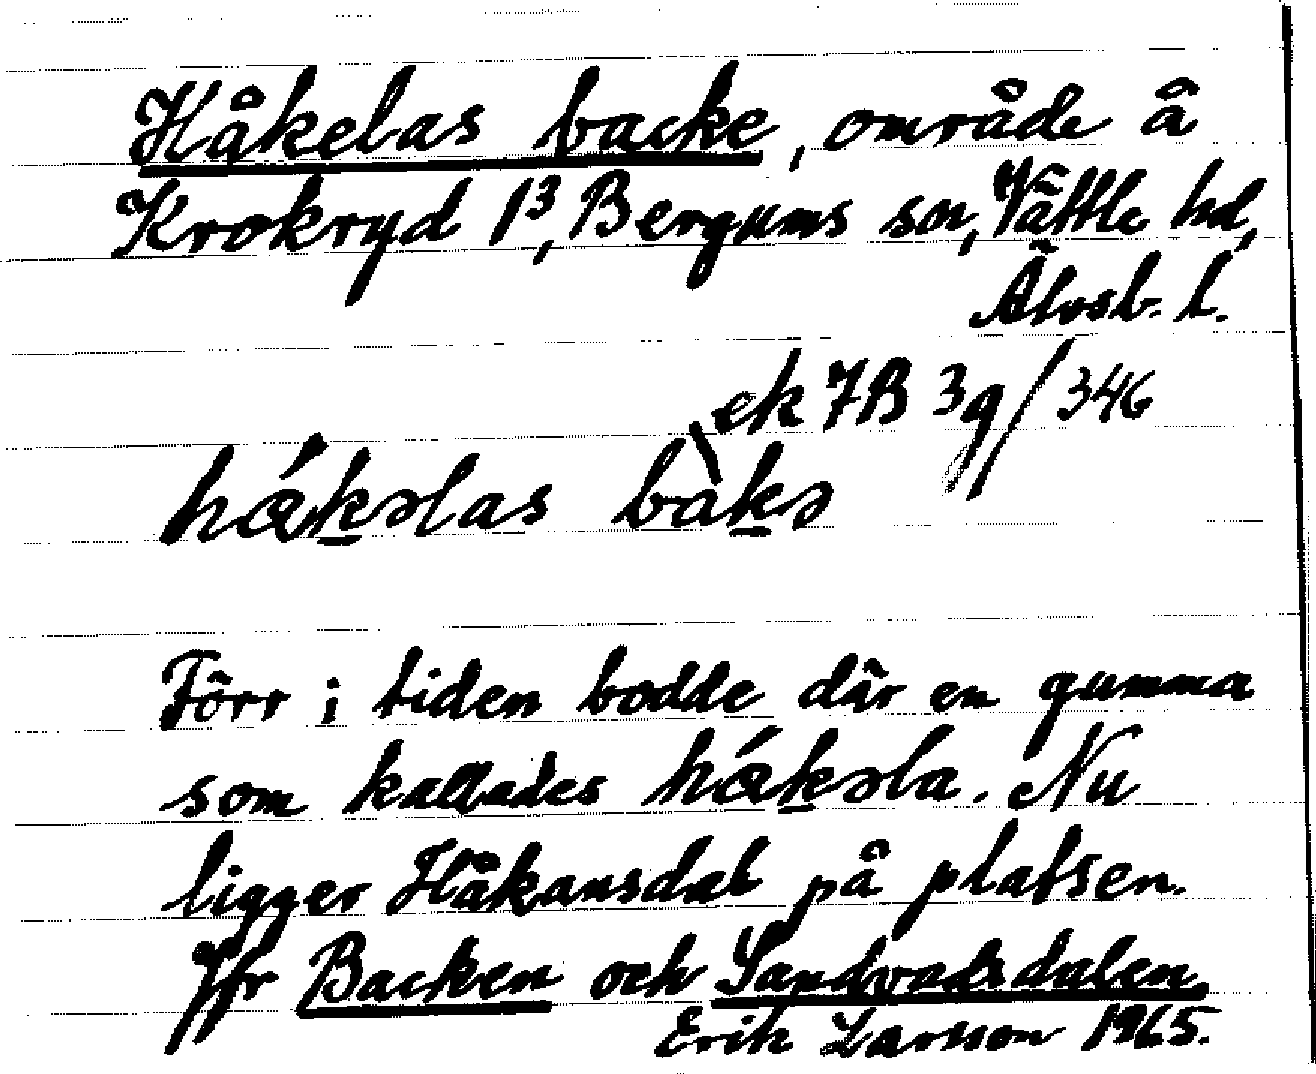 Håkelas backe, område å
Krokryd 1³, Bergums sn, Vättle hd,
Älvsb. l.
ek 7B 3g/346
hǿkəlas bàkə
Förr i tiden bodde där en gumma
som kallades hǿkəla. Nu
ligger Håkansdal på platsen.
Jfr Backen och Sandvadsdalen.
Erik Larsson 1965.